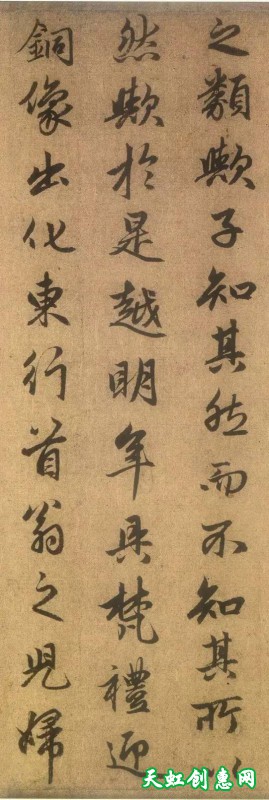 之類歟子知其然而不知其所以
然歟於是越明年具梵禮迎
銅像出化東行首翁之兒婦
天虹创惠网